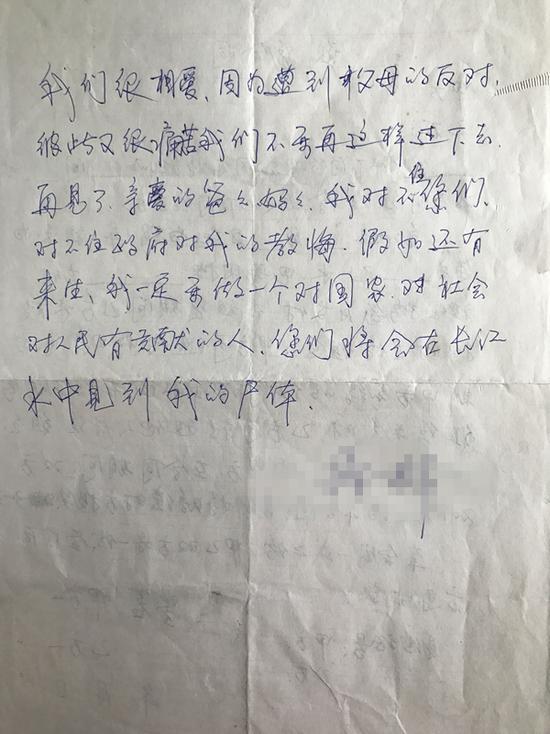 我们很相爱、因为遭到父母的反对、
彼此又很痛苦我们不要再这样过下去
再见了、亲爱的爸爸妈妈、我对不住您们、
对不住政府对我的教悔、假如还有
来生、我一定要做一个对国家、对社会
对人民有贡献的人、您们将会在长江
水中见到我的尸体、